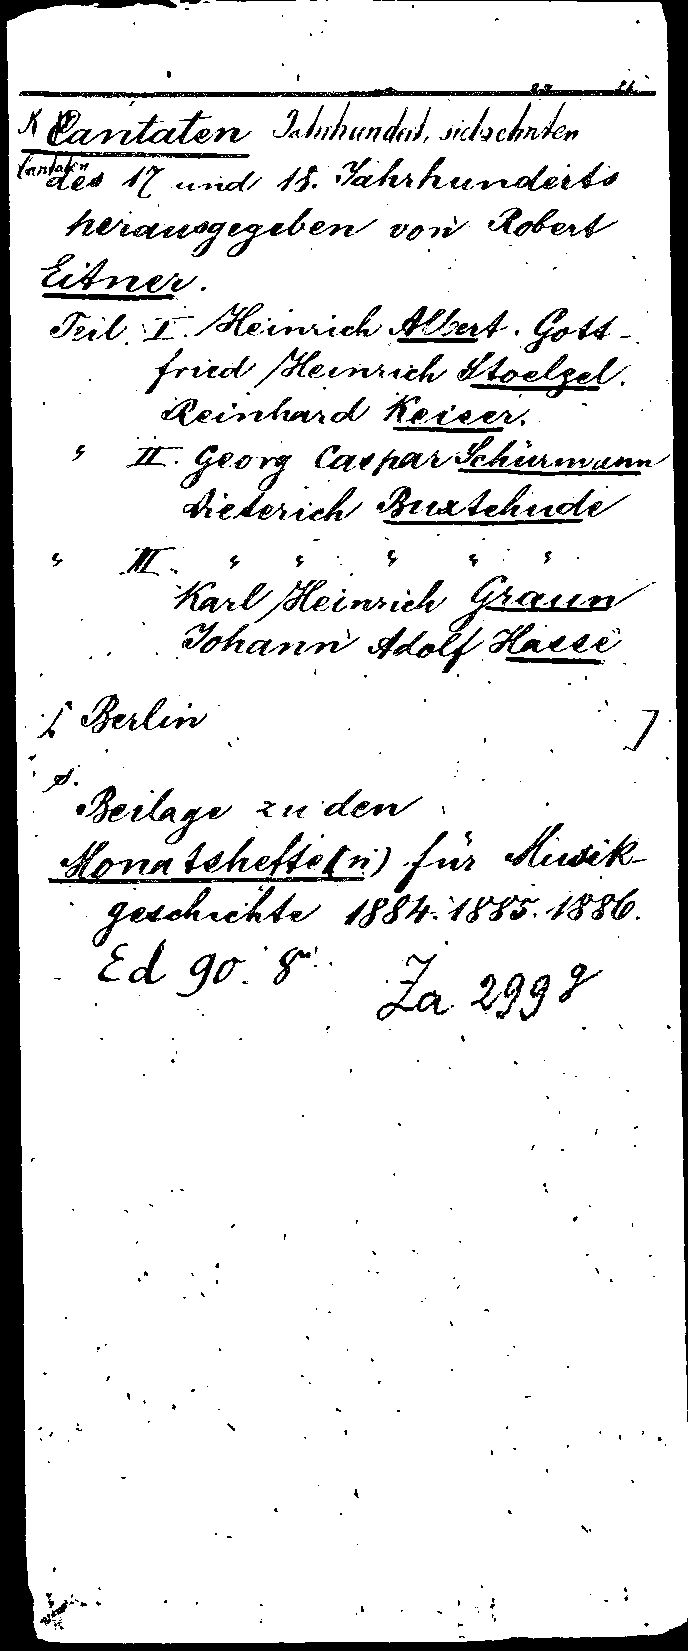 K Cantaten Jahrhundert, siebzehnten
Cantaten
des 17 und 18. Jahrhunderts
herausgegeben von Robert
Eitner.
Teil I. Heinrich Albert. Gott-
fried Heinrich Stoelzel.
Reinhard Keiser.
" II. Georg Caspar Schürmann
Dieterich Buxtehude
" III. " " " " "
Karl Heinrich Graun
Johann Adolf Hasse
[ Berlin ]
s.
Beilage zu den
Monatshefte(n) für Musik-
geschichte 1884. 1885. 1886.
Ed 90. 8
Za 299 g